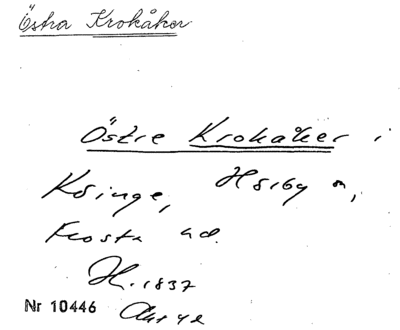 Östra Krokåker
Östre Krokåker i
Köinge, Hörby sn,
Frosta hd.
H. 1837
Nr 10446